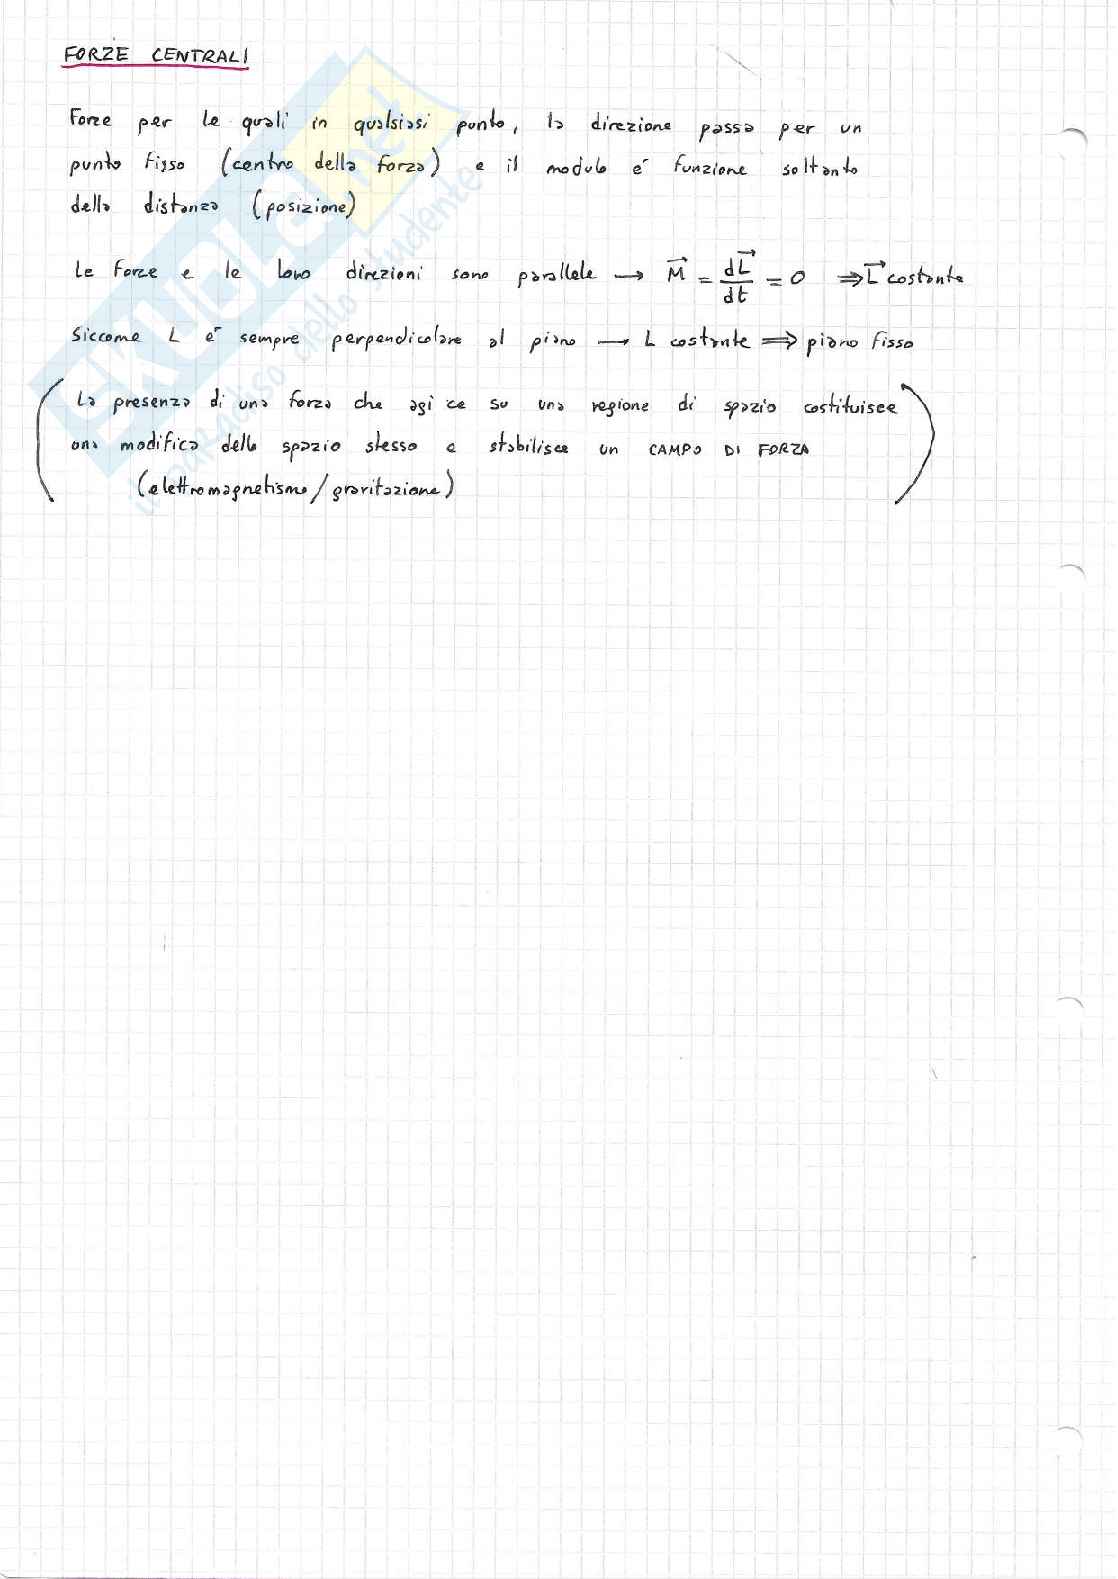 FORZE CENTRALI
Forze per le quali in qualsiasi punto, la direzione passa per un
punto fisso (centro della forza) e il modulo é funzione soltanto
della distanza (posizione)
Le forze e le loro direzioni sono parallele → M⃗ = dL⃗/dt = 0 ⇒ L⃗ costante
Siccome L é sempre perpendicolare al piano → L costante ⇒ piano fisso
(La presenza di una forza che agisce su una regione di spazio costituisce
una modifica dello spazio stesso e stabilisce un CAMPO DI FORZA
(elettromagnetismo/gravitazione))
SKUOLA.net
il paradiso dello studente